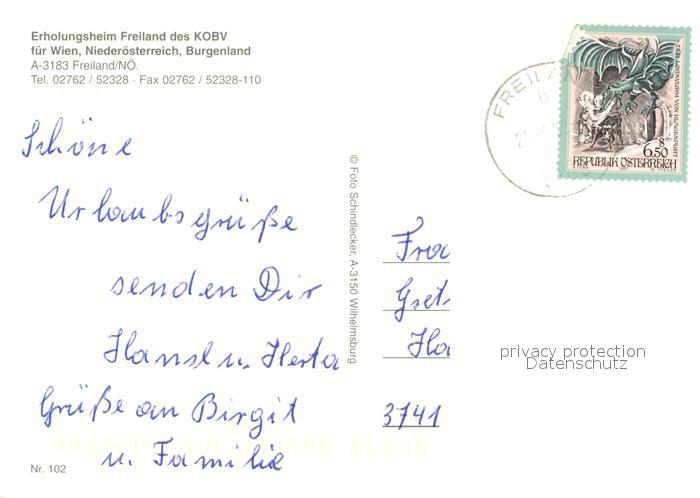 Erholungsheim Freiland des KOBV
für Wien, Niederösterreich, Burgenland
A-3183 Freiland/NÖ.
Tel. 02762 / 52328 · Fax 02762 / 52328-110
Schöne
Urlaubsgrüße
senden Dir
Hansl u. Herta
Grüße an Birgit
u. Familie
Nr. 102
© Foto Schindlecker, A-3150 Wilhelmsburg
DER LINDWURM VON KLAGENFURT
s
6.50
REPUBLIK ÖSTERREICH
Frau
3741
privacy protection
Datenschutz